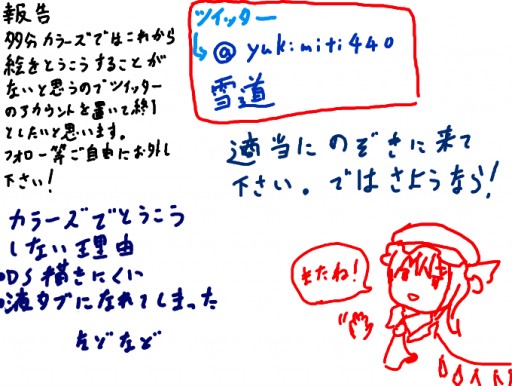 報告
多分カラーズではこれから
絵をとうこうすることが
ないと思うのでツイッター
のアカウントを置いと終り
としたいと思います。
フォロー等ご自由にお外し
下さい!
ツイッター
↳@yukimiti440
雪道
適当にのぞきに来て
下さい。ではさようなら!
カラーズでとうこう
しない理由
•DS描きにくい
•液タブになれてしまった
などなど
またね!